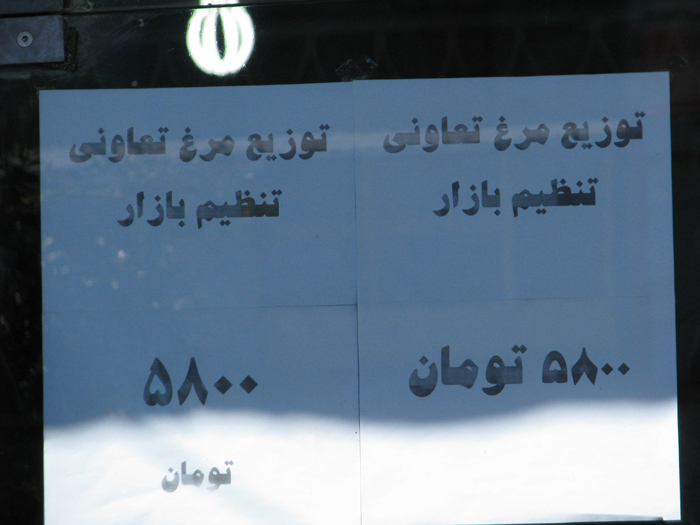 توزیع مرغ تعاونی
تنظیم بازار
۵۸۰۰ تومان
توزیع مرغ تعاونی
تنظیم بازار
۵۸۰۰
تومان